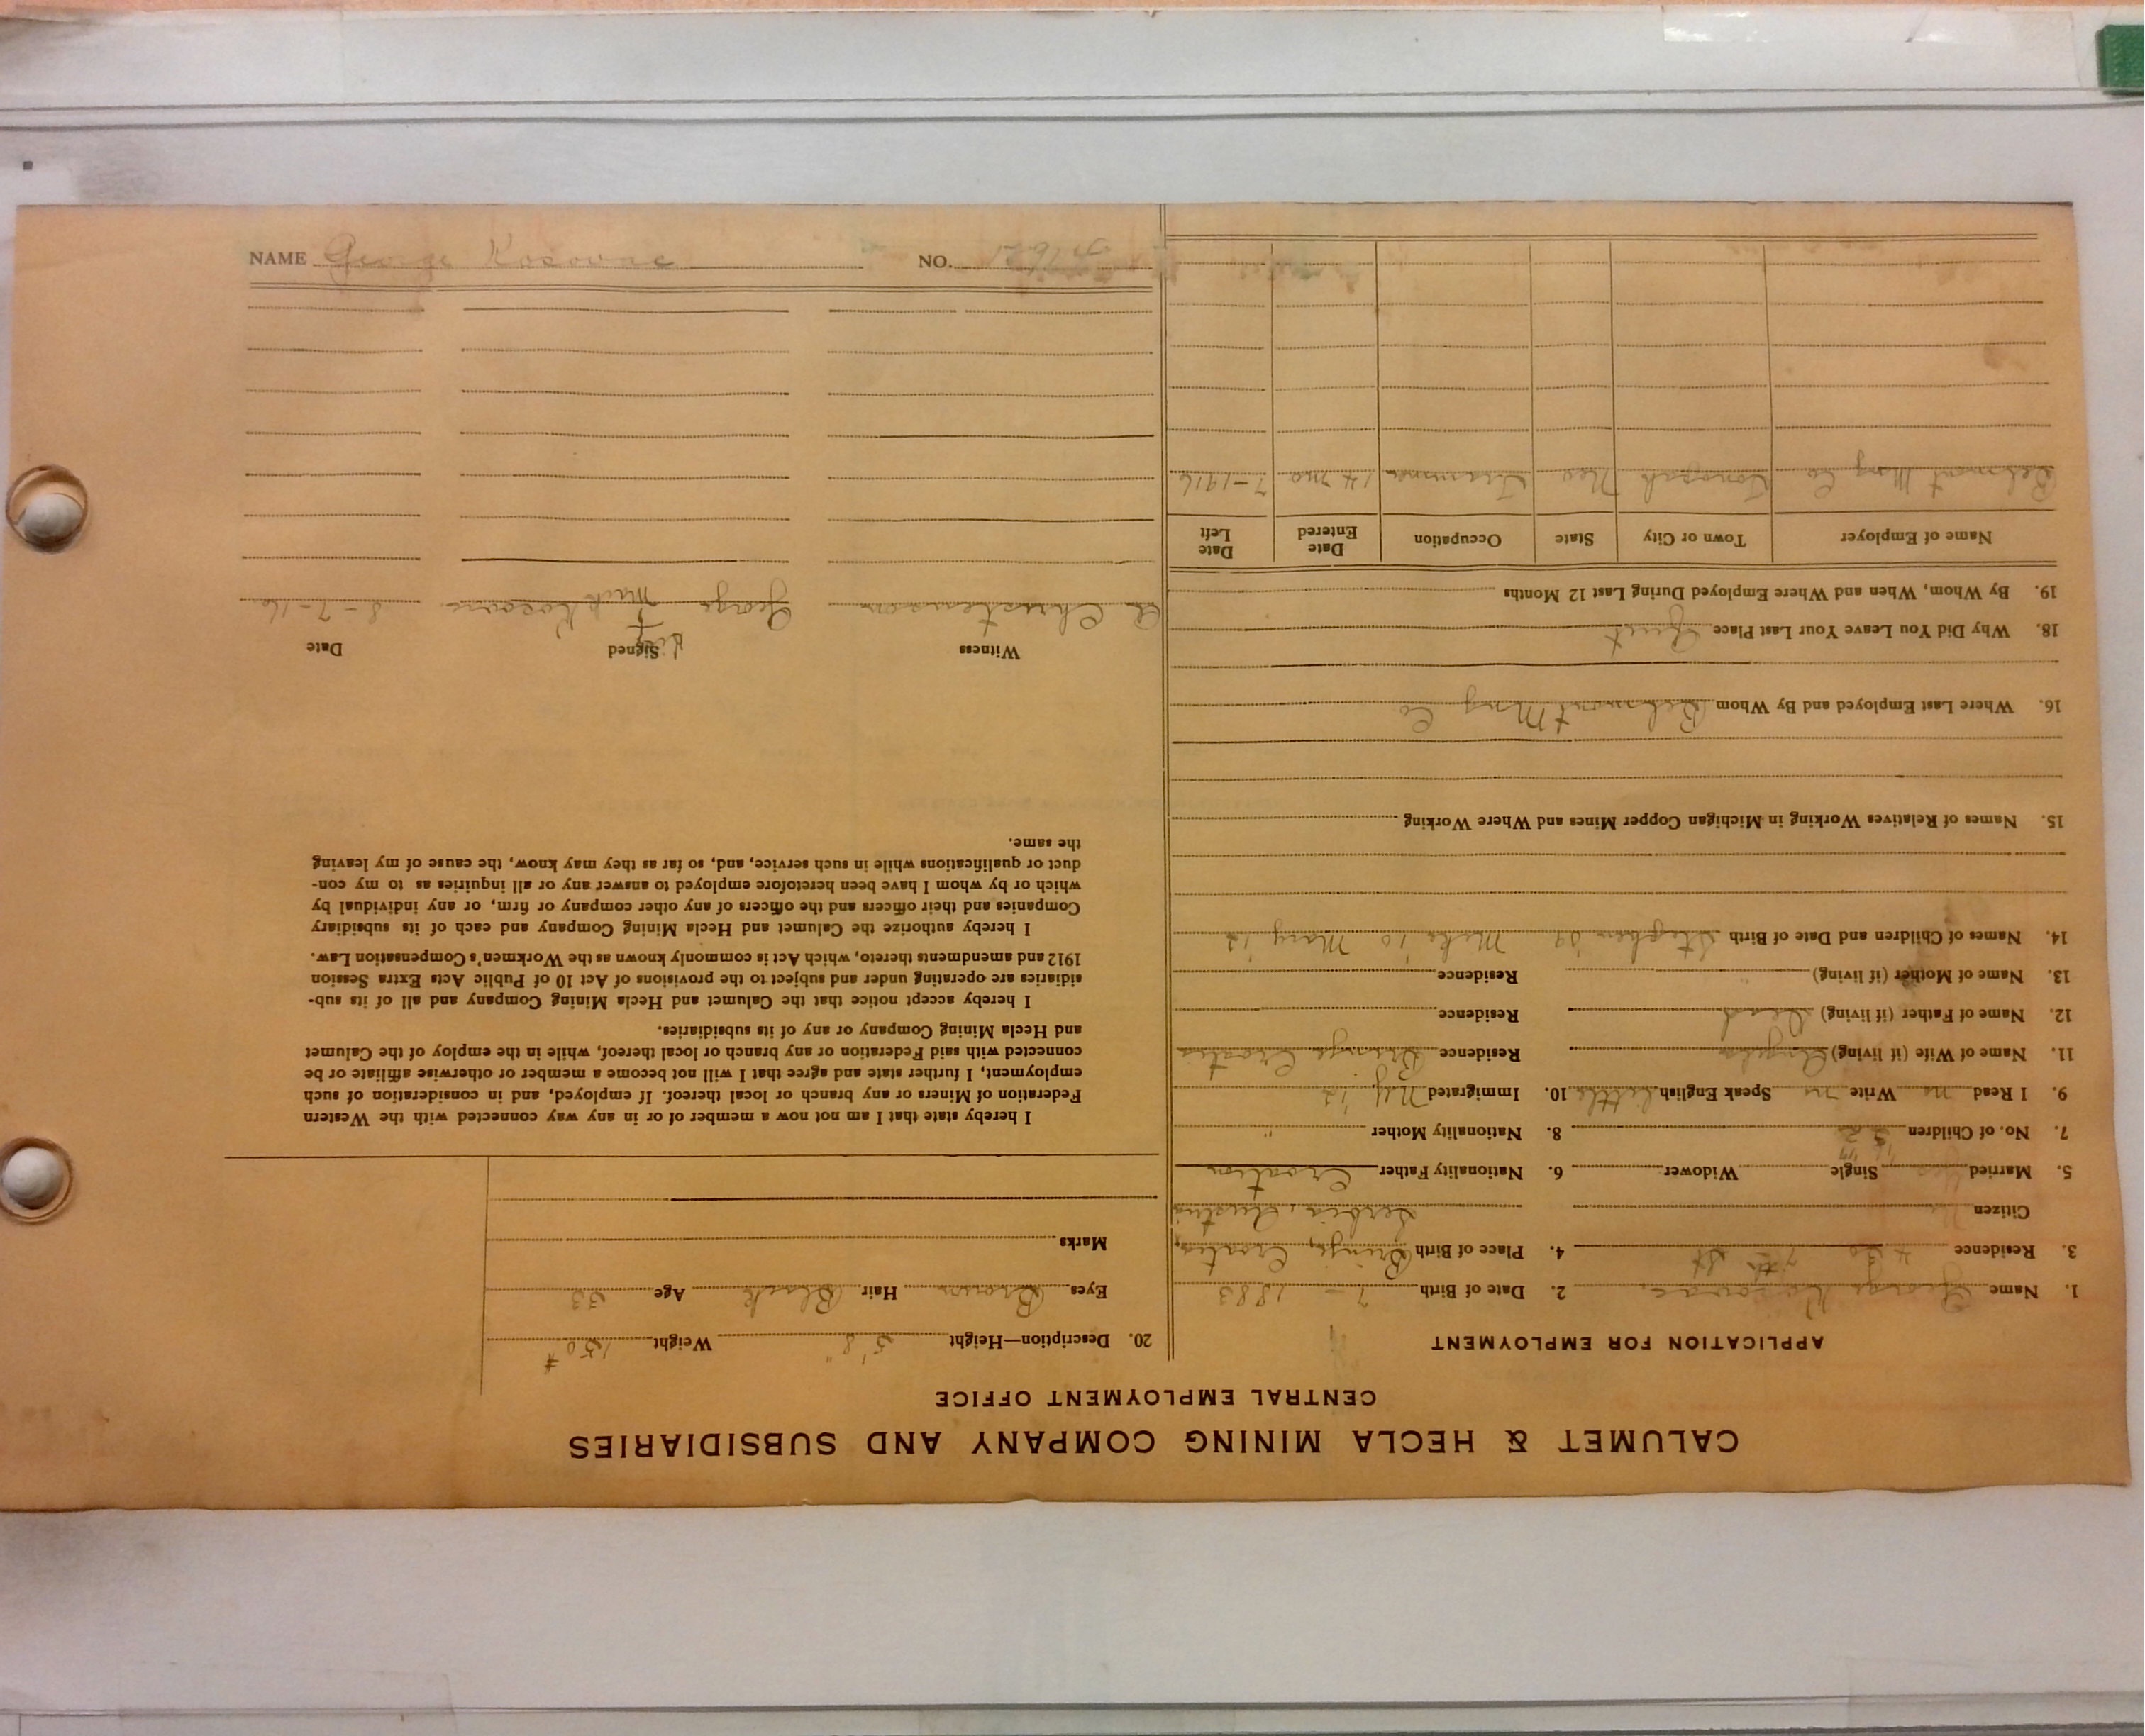 CALUMET & HECLA MINING COMPANY AND SUBSIDIARIES
CENTRAL EMPLOYMENT OFFICE
APPLICATION FOR EMPLOYMENT
1. Name George Kosovac. 2. Date of Birth 7 - 1883
3. Residence 430 7th St 4. Place of Birth Brinje, Croatia,
Citizen No Serbia, Austria
5. Married Yes Single Widower 6. Nationality Father Croatian
7. No. of Children 8. Nationality Mother "
9. I Read no Write no Speak English Little 10. Immigrated N.Y. '12
11. Name of Wife (if living) Angela Residence Brinje Croatia
12. Name of Father (if living) Dead Residence
13. Name of Mother (if living) Residence
14. Names of Children and Date of Birth Stephen '09 Mike '10 Mary '12
15. Names of Relatives Working in Michigan Copper Mines and Where Working
16. Where Last Employed and By Whom Belmont Mng Co
18. Why Did You Leave Your Last Place Quit
19. By Whom, When and Where Employed During Last 12 Months
Name of Employer Town or City State Occupation Date Entered Date Left
Belmont Mng Co Tonopah Nev Trammer 14 mo 7-1916
20. Description—Height 5'8" Weight 150#
Eyes Brown Hair Black Age 33
Marks
I hereby state that I am not now a member of or in any way connected with the Western
Federation of Miners or any branch or local thereof. If employed, and in consideration of such
employment, I further state and agree that I will not become a member or otherwise affiliate or be
connected with said Federation or any branch or local thereof, while in the employ of the Calumet
and Hecla Mining Company or any of its subsidiaries.
I hereby accept notice that the Calumet and Hecla Mining Company and all of its sub-
sidiaries are operating under and subject to the provisions of Act 10 of Public Acts Extra Session
1912 and amendments thereto, which Act is commonly known as the Workmen's Compensation Law.
I hereby authorize the Calumet and Hecla Mining Company and each of its subsidiary
Companies and their officers and the officers of any other company or firm, or any individual by
which or by whom I have been heretofore employed to answer any or all inquiries as to my con-
duct or qualifications while in such service, and, so far as they may know, the cause of my leaving
the same.
Witness Signed Date
His
A. Christensen George + Kosovac 8-7-16
Mark
NAME George Kosovac NO.